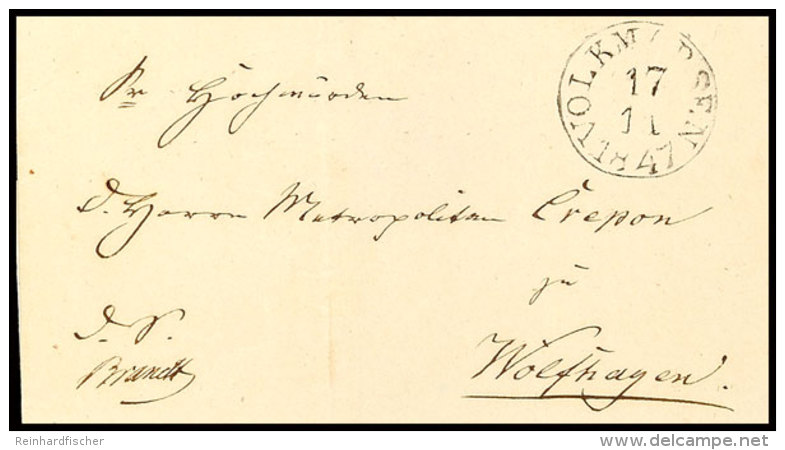 VOLKMARSEN
17
11
1847
Sr Hochwürden
d. Herrn Metropolitan Crepon
zu
d. S.
Brandt
Wolfhagen.
Reinhardfischer
delcampe.net